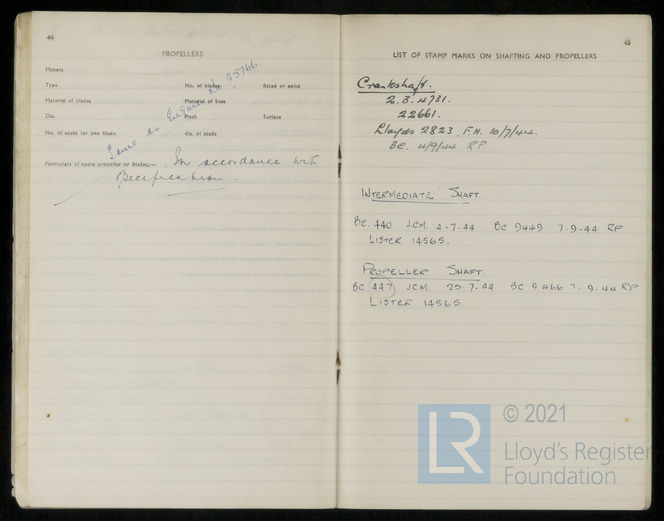 44
PROPELLERS
Makers
Type No. of blades Fitted or solid
Material of blades Material of boss
Dia. Pitch Surface
No. of studs for one blade dia. of studs
Same as Engine No 95766.
Particulars of spare propeller or blades:— In accordance with
Specification.
45
LIST OF STAMP MARKS ON SHAFTING AND PROPELLERS
Crankshaft.
2.B. 4731.
22661.
Lloyds 2823. F.H. 10/7/44.
BC. 4/9/44 RP.
INTERMEDIATE SHAFT.
BC. 440 J.C.M. 4-7-44 BC 9449 7-9-44 RP
LISTER 14565.
PROPELLER SHAFT.
BC 447 J.C.M. 25-7-44 BC 9466 7-9-44 RP
LISTER 14565.
LR
© 2021
Lloyd's Register
Foundation